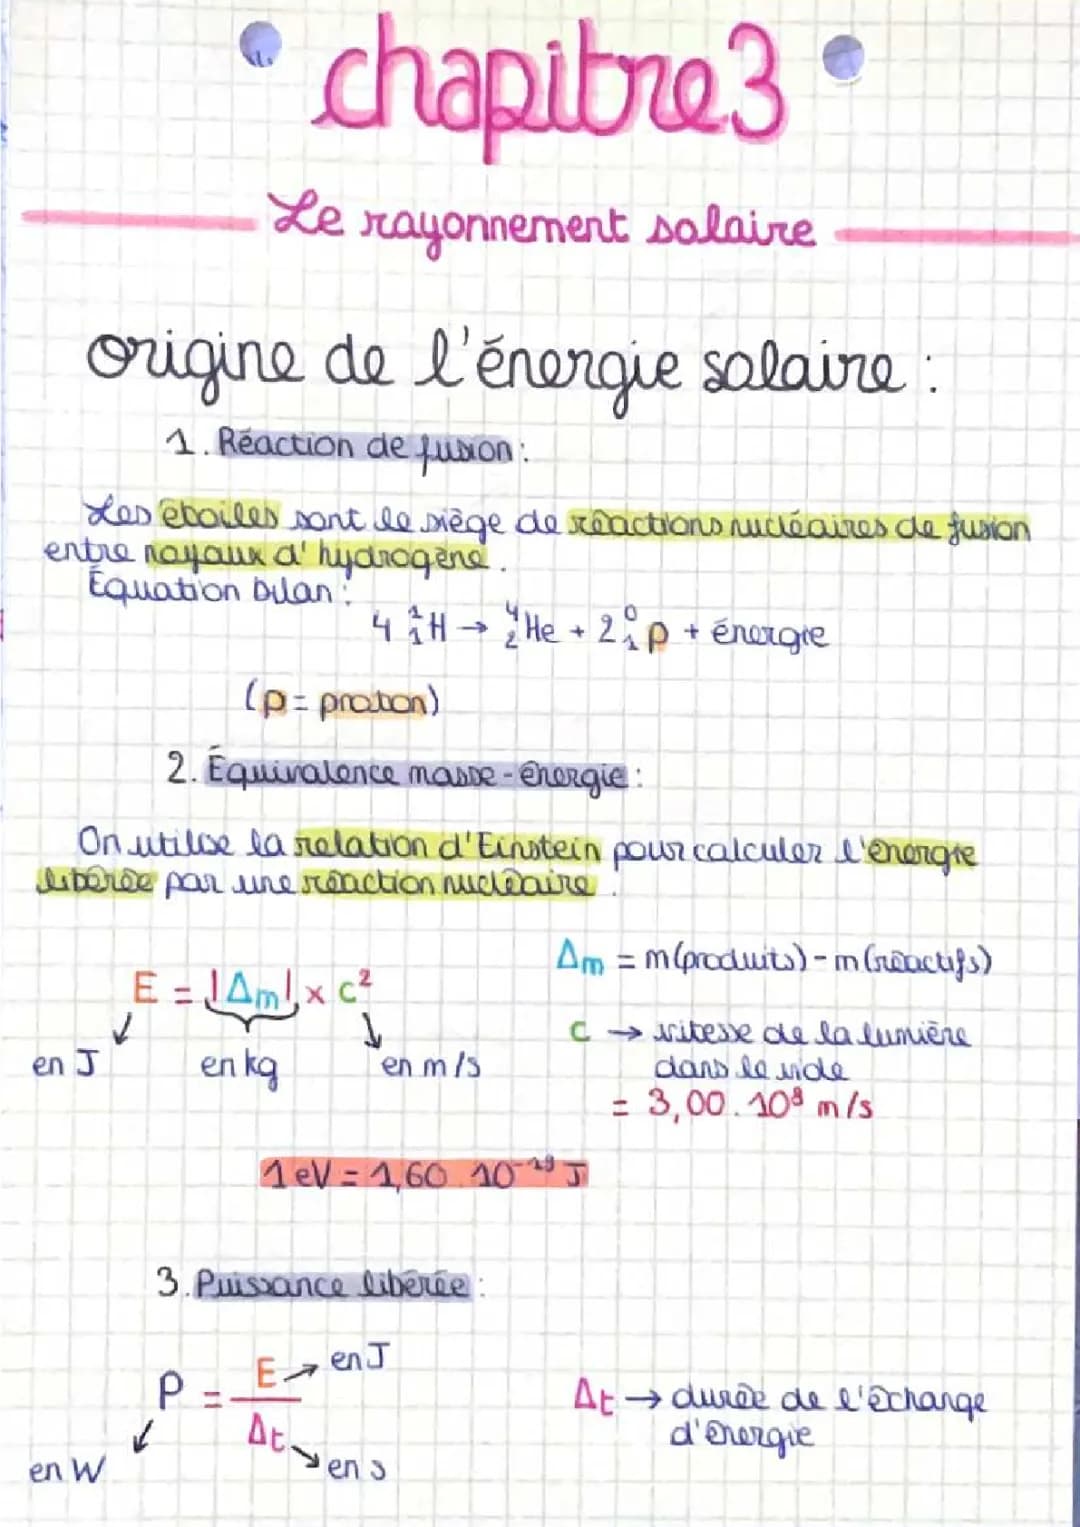 chapitre 3
Le rayonnement solaire
origine de l'énergie solaire :
1. Réaction de fusion :
Les étoiles sont le siège de réactions nucléaires de fusion
entre noyaux d'hydrogène.
Équation bilan :
4 ¹₁H → ⁴₂He + 2 ⁰₁p + énergie
(p = proton)
2. Équivalence masse-énergie :
On utilise la relation d'Einstein pour calculer l'énergie
libérée par une réaction nucléaire.
Δm = m(produits) - m(réactifs)
E = |Δm| × c²
en J en kg en m/s
c → vitesse de la lumière
dans le vide
= 3,00.10⁸ m/s
1 eV = 1,60.10⁻¹⁹ J
3. Puissance libérée :
P = E/Δt
en J
en W
en s
Δt → durée de l'échange
d'énergie